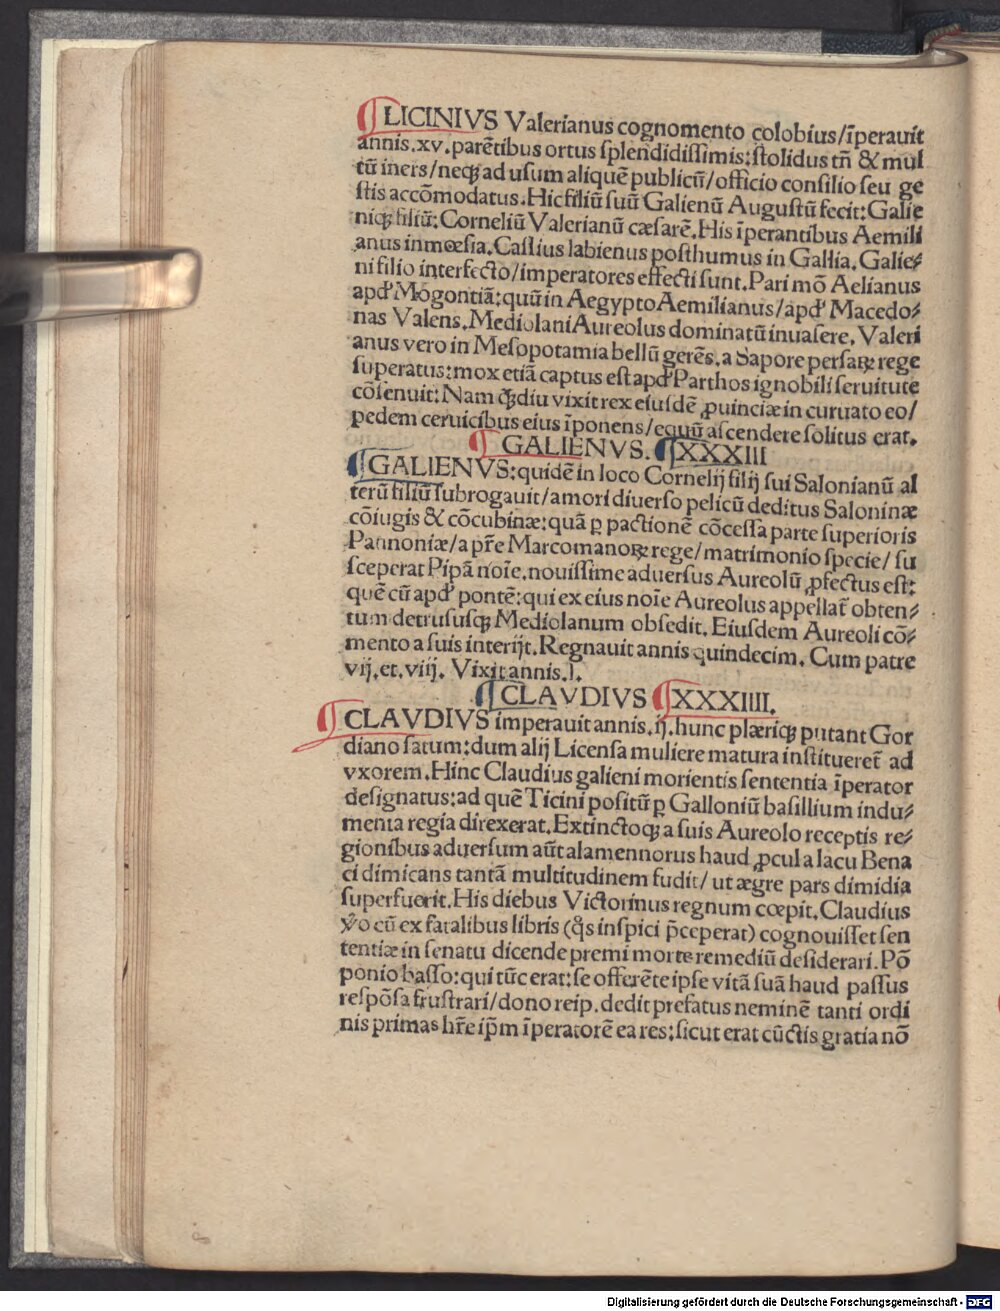 ¶LICINIVS Valerianus cognomento colobius/īperauit
annis.xv.parētibus ortus ſplendidiſſimis:ſtolidus tñ & mul
tū iners/neqꝫ ad uſum aliquē publicū/officio conſilio ſeu ge
ſtis accōmodatus.Hic filiū ſuū Galienū Auguſtū fecit:Galie
niqꝫ filiū:Corneliū Valerianū cæſarē.His īperantibus Aemili
anus in mœſia.Caſſius labienus poſthumus in Gallia.Galie⸗
ni filio interfecto/imperatores effecti ſunt.Pari mō Aelianus
apđ Mogontiā:quū in Aegypto Aemilianus/apđ Macedo⸗
nas Valens.Mediolani Aureolus dominatū inuaſere.Valeri
anus vero in Meſopotamia bellū gerēs.a Sapore perſaꝝ rege
ſuperatus:mox etiā captus eſt apđ Parthos ignobili ſeruitute
cōſenuit:Nam ꝙ̄diu vixit rex eiuſdē ꝓuinciæ in curuato eo/
pedem ceruicibus eius īponens/equū aſcendere ſolitus erat.
¶GALIENVS. ¶XXXIII
¶GALIENVS:quidē in loco Cornelij filij ſui Salonianū al
terū filiū ſubrogauit/amori diuerſo pelicū deditus Saloninæ
cōiugis & cōcubinæ:quā ꝑ pactionē cōceſſa parte ſuperioris
Pannoniæ/a pr̄e Marcomanoꝝ rege/matrimonio ſpecie/ſu
ſceperat Pipā noīe.nouiſſime aduerſus Aureolū ꝓfectus eſt:
quē cū apđ pontē:qui ex eius noīe Aureolus appellat̄ obten⸗
tum detruſuſqꝫ Mediolanum obſedit.Eiuſdem Aureoli cō⸗
mento a ſuis interijt.Regnauit annis quindecim.Cum patre
vij.et.viij. Vixit annis.l.
¶CLAVDIVS ¶XXXIIII.
¶CLAVDIVS imperauit annis.ij.hunc plæriqꝫ putant Gor
diano ſatum:dum alij Licenſa muliere matura inſtitueret̄ ad
vxorem.Hinc Claudius galieni morientis ſententia īperator
deſignatus:ad quē Ticini poſitū ꝑ Galloniū baſillium indu⸗
menta regia direxerat.Extinctoqꝫ a ſuis Aureolo receptis re⸗
gionibus aduerſum aūt alamennorus haud ꝓcul a lacu Bena
ci dimicans tantā multitudinem fudit/ut ægre pars dimidia
ſuperfuerit.His diebus Victorinus regnum cœpit.Claudius
v̄o cū ex fatalibus libris (q̄s inſpici p̄ceperat) cognouiſſet ſen
tentiæ in ſenatu dicende premi morte remediū deſiderari.Pō
ponio baſſo:qui tūc erat:ſe offerēte ipſe vitā ſuā haud paſſus
reſpōſa fruſtrari/dono reip.dedit prefatus neminē tanti ordi
nis primas hr̄e ip̄m īperatorē ea res:ſicut erat cūctis gratia nō
Digitalisierung gefördert durch die Deutsche Forschungsgemeinschaft - DFG